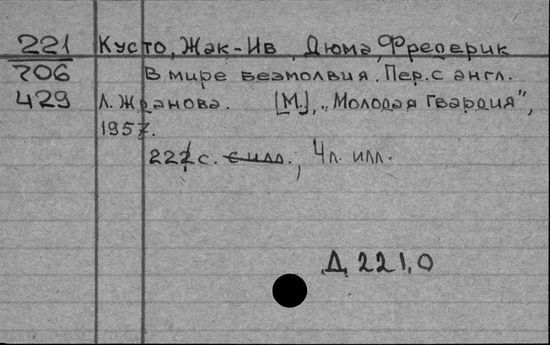 221 Кусто, Жак-Ив, Дюма, Фредерик
706 В мире безмолвия. Пер. с англ.
429 Л. Жданова. [М.], „Молодая Гвардия",
1957.
222 с. с илл., 4 л. илл.
Д 221.0